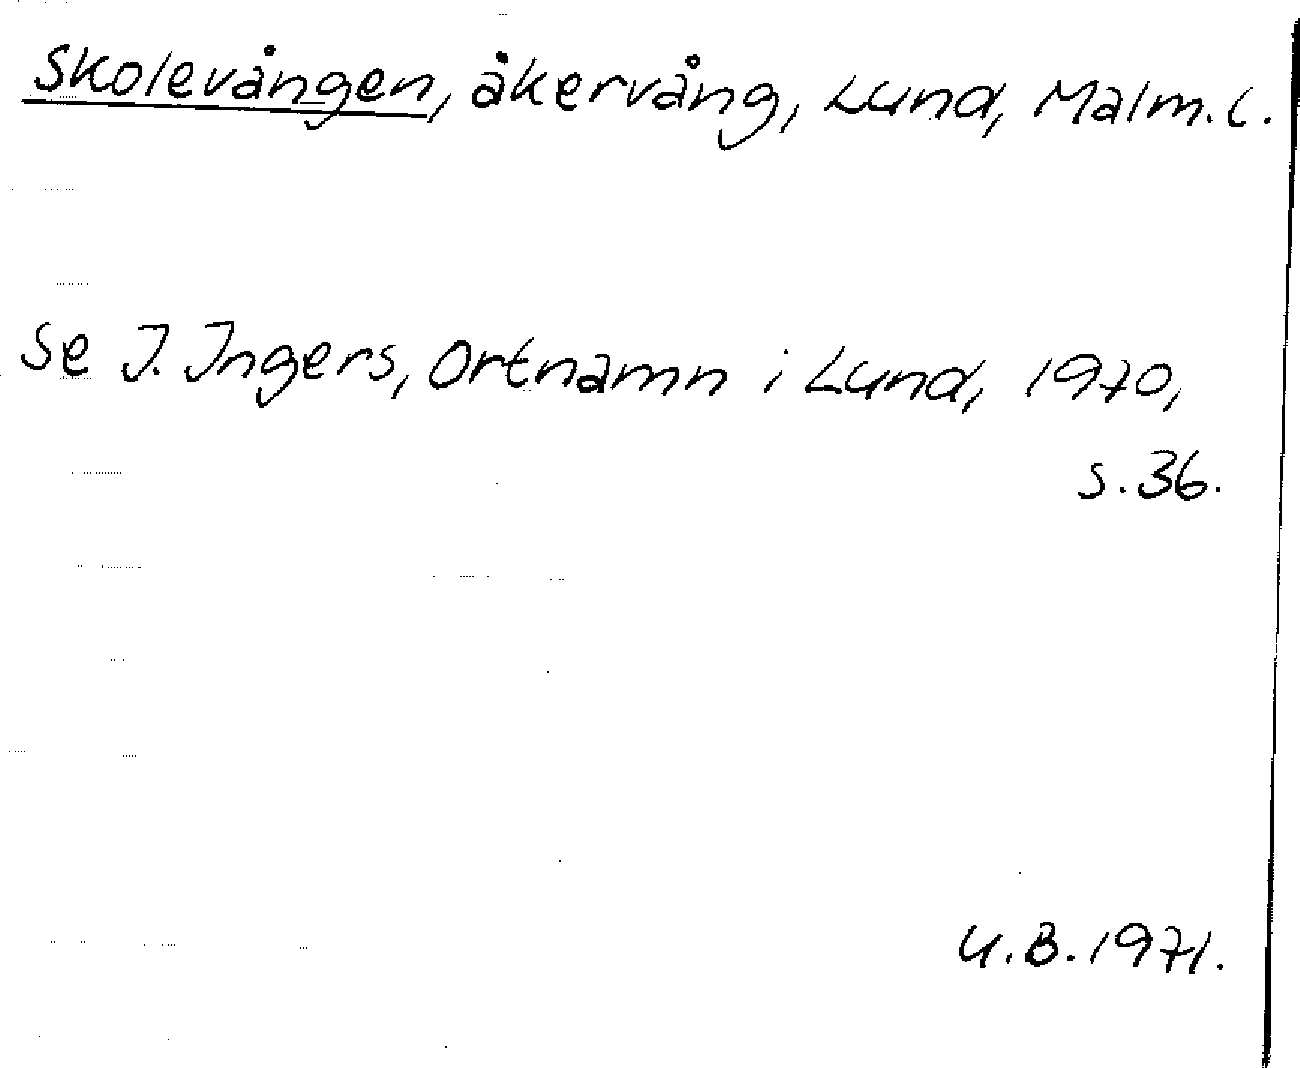 Skolevången, åkervång, Lund, Malm. l.
Se I. Ingers, Ortnamn i Lund, 1970,
s. 36.
U.B. 1971.